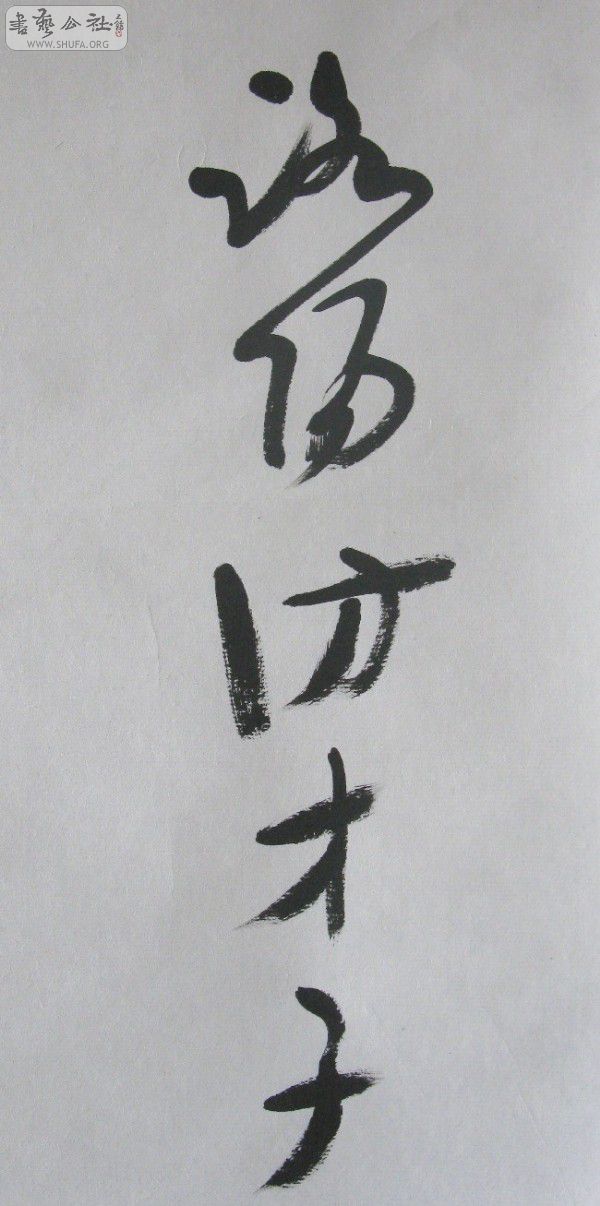 書藝公社
WWW.SHUFA.ORG
洛陽訪才子